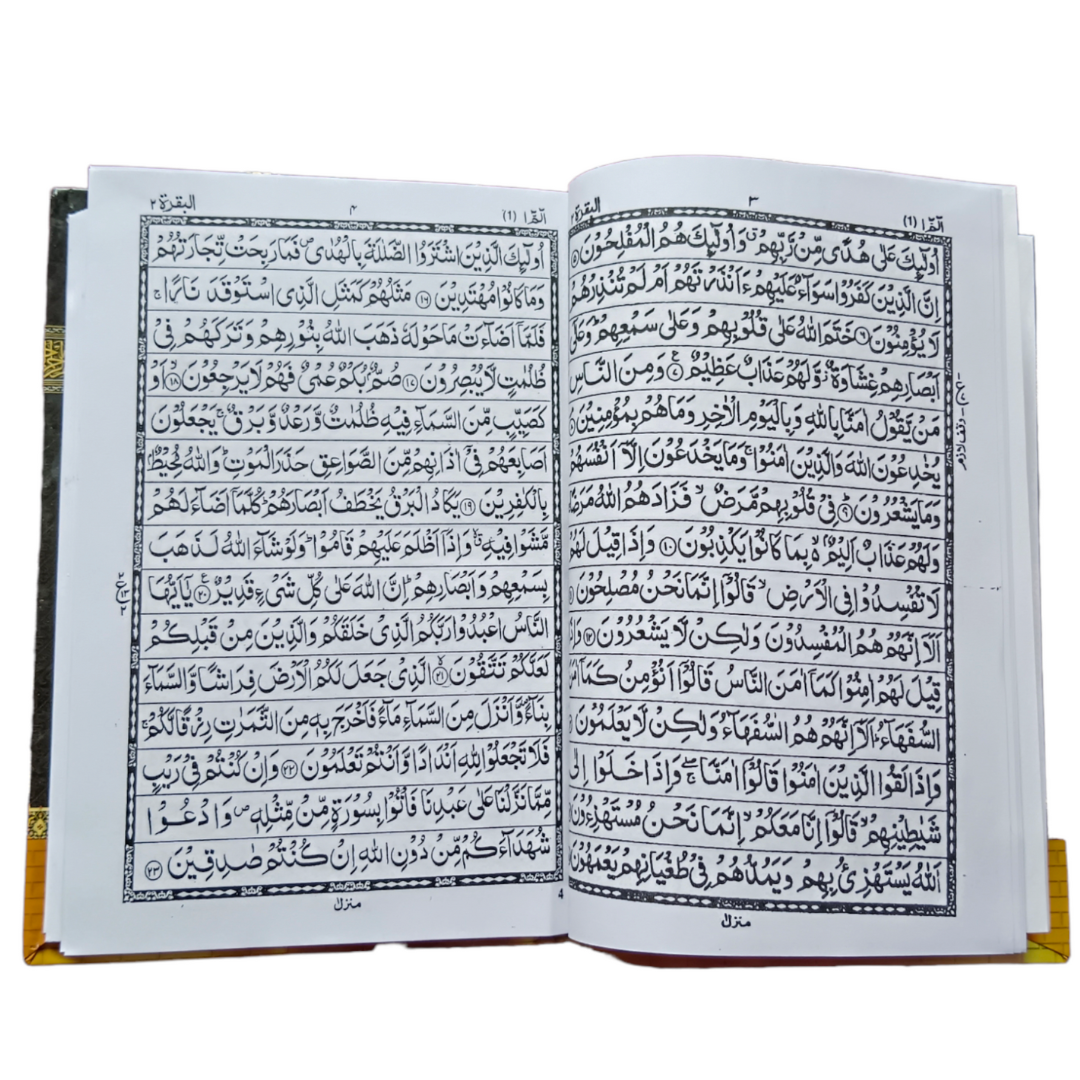 الٓمّٓ ١ (١)
٣
البقرة ٢
اُولٰٓئِكَ عَلٰى هُدًى مِّنْ رَّبِّهِمْ ۙ وَاُولٰٓئِكَ هُمُ الْمُفْلِحُوْنَ ۝۵
اِنَّ الَّذِيْنَ كَفَرُوْا سَوَآءٌ عَلَيْهِمْ ءَاَنْذَرْتَهُمْ اَمْ لَمْ تُنْذِرْهُمْ
لَا يُؤْمِنُوْنَ ۝۶ خَتَمَ اللّٰهُ عَلٰى قُلُوْبِهِمْ وَعَلٰى سَمْعِهِمْ ؕ وَعَلٰٓى
اَبْصَارِهِمْ غِشَاوَةٌ ؗ وَّلَهُمْ عَذَابٌ عَظِيْمٌ ۝۷ وَمِنَ النَّاسِ
مَنْ يَّقُوْلُ اٰمَنَّا بِاللّٰهِ وَبِالْيَوْمِ الْاٰخِرِ وَمَا هُمْ بِمُؤْمِنِيْنَ ۝۸
يُخٰدِعُوْنَ اللّٰهَ وَالَّذِيْنَ اٰمَنُوْا ۚ وَمَا يَخْدَعُوْنَ اِلَّآ اَنْفُسَهُمْ
وَمَا يَشْعُرُوْنَ ۝۹ فِىْ قُلُوْبِهِمْ مَّرَضٌ ۙ فَزَادَهُمُ اللّٰهُ مَرَضًا
وَلَهُمْ عَذَابٌ اَلِيْمٌ ۢ ۙ بِمَا كَانُوْا يَكْذِبُوْنَ ۝۱۰ وَاِذَا قِيْلَ لَهُمْ
لَا تُفْسِدُوْا فِى الْاَرْضِ ۙ قَالُوْٓا اِنَّمَا نَحْنُ مُصْلِحُوْنَ ۝۱۱
اَلَآ اِنَّهُمْ هُمُ الْمُفْسِدُوْنَ وَلٰكِنْ لَّا يَشْعُرُوْنَ ۝۱۲ وَاِذَا
قِيْلَ لَهُمْ اٰمِنُوْا كَمَآ اٰمَنَ النَّاسُ قَالُوْٓا اَنُؤْمِنُ كَمَآ اٰمَنَ
السُّفَهَآءُ ؕ اَلَآ اِنَّهُمْ هُمُ السُّفَهَآءُ وَلٰكِنْ لَّا يَعْلَمُوْنَ ۝۱۳
وَاِذَا لَقُوا الَّذِيْنَ اٰمَنُوْا قَالُوْٓا اٰمَنَّا ۖۚ وَاِذَا خَلَوْا اِلٰى
شَيٰطِيْنِهِمْ ۙ قَالُوْٓا اِنَّا مَعَكُمْ ۙ اِنَّمَا نَحْنُ مُسْتَهْزِءُوْنَ ۝۱۴
اَللّٰهُ يَسْتَهْزِئُ بِهِمْ وَيَمُدُّهُمْ فِىْ طُغْيَانِهِمْ يَعْمَهُوْنَ
وقف لازم
منزل١
الٓمّٓ ١ (١)
۴
البقرة ٢
اُولٰٓئِكَ الَّذِيْنَ اشْتَرَوُا الضَّلٰلَةَ بِالْهُدٰى ۪ فَمَا رَبِحَتْ تِّجَارَتُهُمْ
وَمَا كَانُوْا مُهْتَدِيْنَ ۝۱۶ مَثَلُهُمْ كَمَثَلِ الَّذِى اسْتَوْقَدَ نَارًا ۚ
فَلَمَّآ اَضَآءَتْ مَا حَوْلَهٗ ذَهَبَ اللّٰهُ بِنُوْرِهِمْ وَتَرَكَهُمْ فِىْ
ظُلُمٰتٍ لَّا يُبْصِرُوْنَ ۝۱۷ صُمٌّۢ بُكْمٌ عُمْىٌ فَهُمْ لَا يَرْجِعُوْنَ ۝۱۸ اَوْ
كَصَيِّبٍ مِّنَ السَّمَآءِ فِيْهِ ظُلُمٰتٌ وَّرَعْدٌ وَّبَرْقٌ ۚ يَجْعَلُوْنَ
اَصَابِعَهُمْ فِىْٓ اٰذَانِهِمْ مِّنَ الصَّوَاعِقِ حَذَرَ الْمَوْتِ ؕ وَاللّٰهُ مُحِيْطٌۢ
بِالْكٰفِرِيْنَ ۝۱۹ يَكَادُ الْبَرْقُ يَخْطَفُ اَبْصَارَهُمْ ؕ كُلَّمَآ اَضَآءَ لَهُمْ
مَّشَوْا فِيْهِ ۙ وَاِذَآ اَظْلَمَ عَلَيْهِمْ قَامُوْا ؕ وَلَوْ شَآءَ اللّٰهُ لَذَهَبَ
بِسَمْعِهِمْ وَاَبْصَارِهِمْ ؕ اِنَّ اللّٰهَ عَلٰى كُلِّ شَىْءٍ قَدِيْرٌ ۝۲۰ يٰٓاَيُّهَا
النَّاسُ اعْبُدُوْا رَبَّكُمُ الَّذِىْ خَلَقَكُمْ وَالَّذِيْنَ مِنْ قَبْلِكُمْ
لَعَلَّكُمْ تَتَّقُوْنَ ۝۲۱ الَّذِىْ جَعَلَ لَكُمُ الْاَرْضَ فِرَاشًا وَّالسَّمَآءَ
بِنَآءً ۪ وَّاَنْزَلَ مِنَ السَّمَآءِ مَآءً فَاَخْرَجَ بِهٖ مِنَ الثَّمَرٰتِ رِزْقًا لَّكُمْ ۚ
فَلَا تَجْعَلُوْا لِلّٰهِ اَنْدَادًا وَّاَنْتُمْ تَعْلَمُوْنَ ۝۲۲ وَاِنْ كُنْتُمْ فِىْ رَيْبٍ
مِّمَّا نَزَّلْنَا عَلٰى عَبْدِنَا فَاْتُوْا بِسُوْرَةٍ مِّنْ مِّثْلِهٖ ۪ وَادْعُوْا
شُهَدَآءَكُمْ مِّنْ دُوْنِ اللّٰهِ اِنْ كُنْتُمْ صٰدِقِيْنَ ۝۲۳
منزل١